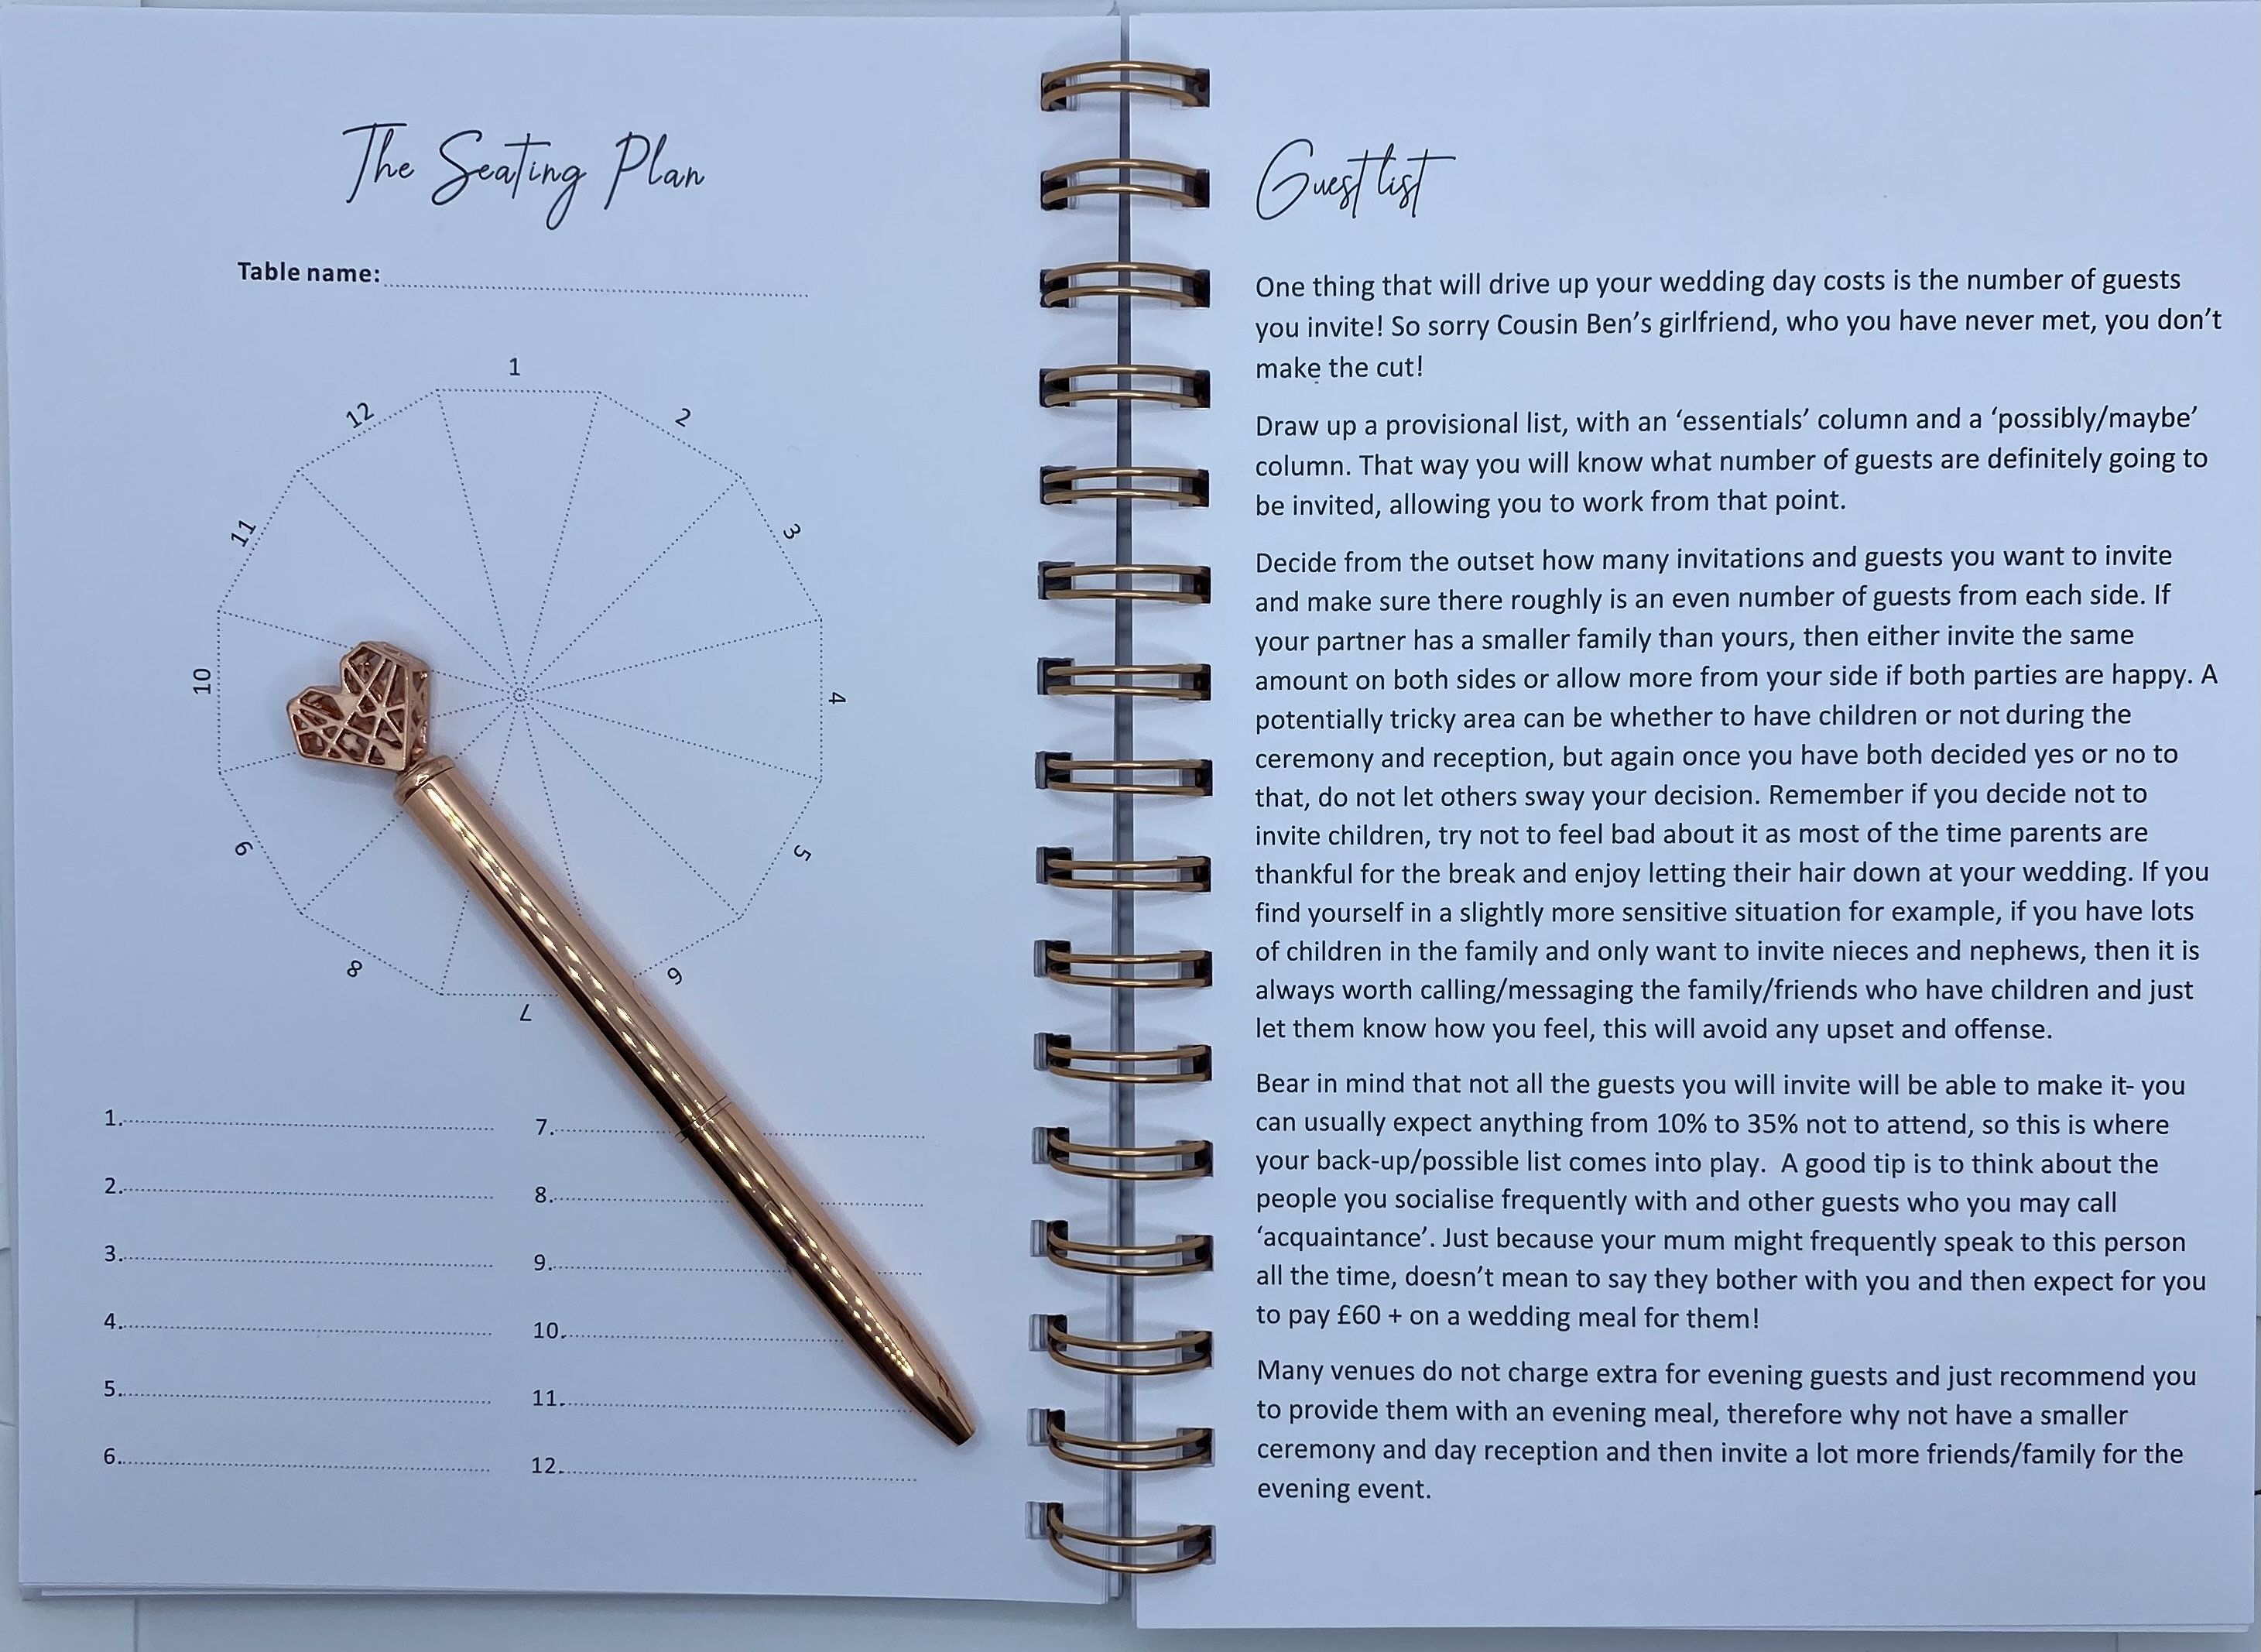 The Seating Plan
Table name:
1
2
3
4
5
6
7
8
9
10
11
12
1.
2.
3.
4.
5.
6.
7.
8.
9.
10.
11.
12.
Guest list
One thing that will drive up your wedding day costs is the number of guests
you invite! So sorry Cousin Ben’s girlfriend, who you have never met, you don’t
make the cut!
Draw up a provisional list, with an ‘essentials’ column and a ‘possibly/maybe’
column. That way you will know what number of guests are definitely going to
be invited, allowing you to work from that point.
Decide from the outset how many invitations and guests you want to invite
and make sure there roughly is an even number of guests from each side. If
your partner has a smaller family than yours, then either invite the same
amount on both sides or allow more from your side if both parties are happy. A
potentially tricky area can be whether to have children or not during the
ceremony and reception, but again once you have both decided yes or no to
that, do not let others sway your decision. Remember if you decide not to
invite children, try not to feel bad about it as most of the time parents are
thankful for the break and enjoy letting their hair down at your wedding. If you
find yourself in a slightly more sensitive situation for example, if you have lots
of children in the family and only want to invite nieces and nephews, then it is
always worth calling/messaging the family/friends who have children and just
let them know how you feel, this will avoid any upset and offense.
Bear in mind that not all the guests you will invite will be able to make it- you
can usually expect anything from 10% to 35% not to attend, so this is where
your back-up/possible list comes into play.  A good tip is to think about the
people you socialise frequently with and other guests who you may call
‘acquaintance’. Just because your mum might frequently speak to this person
all the time, doesn’t mean to say they bother with you and then expect for you
to pay £60 + on a wedding meal for them!
Many venues do not charge extra for evening guests and just recommend you
to provide them with an evening meal, therefore why not have a smaller
ceremony and day reception and then invite a lot more friends/family for the
evening event.